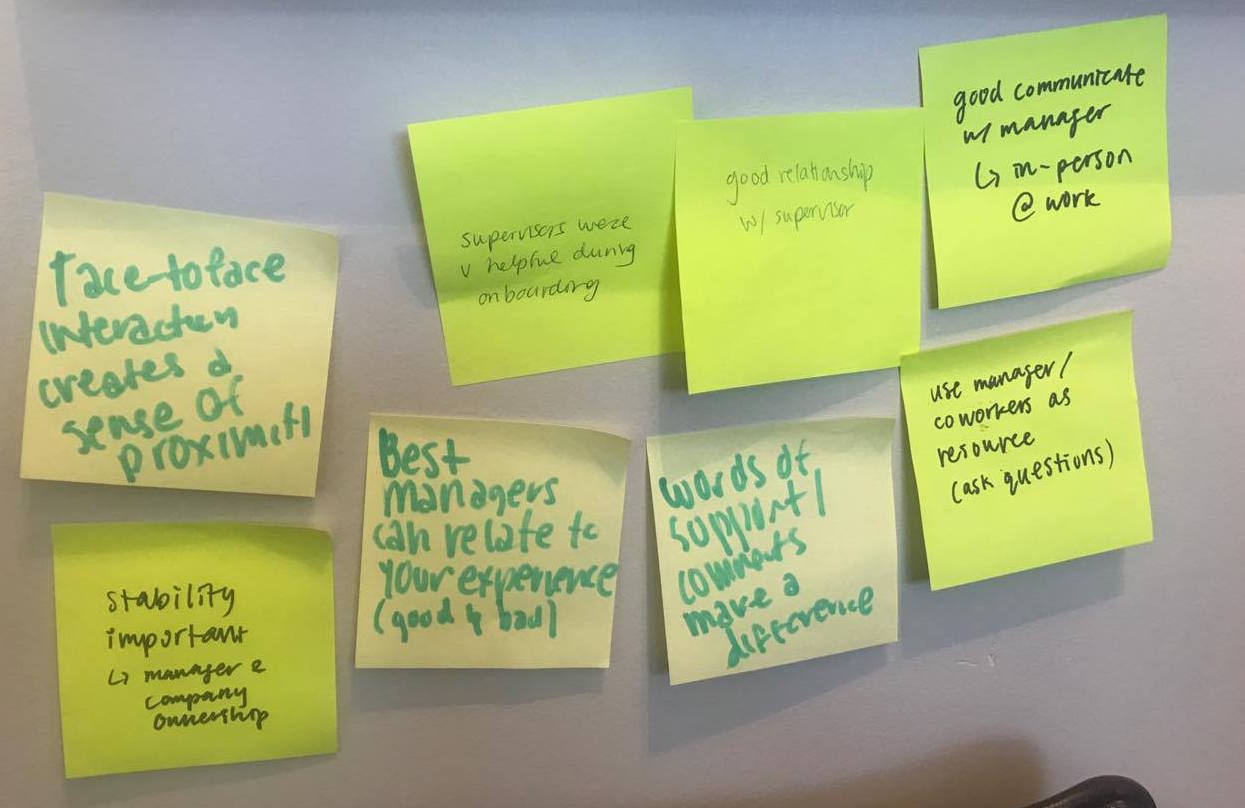 face-to face
interaction
creates a
sense of
proximity
supervisors were
v helpful during
onboarding
good relationship
w/ supervisor
good communicate
w/ manager
↳ in-person
@ work
stability
important
↳ manager &
company
ownership
Best
managers
can relate to
your experience
(good & bad)
words of
support/
comments
make a
difference
use manager/
coworkers as
resource
(ask questions)